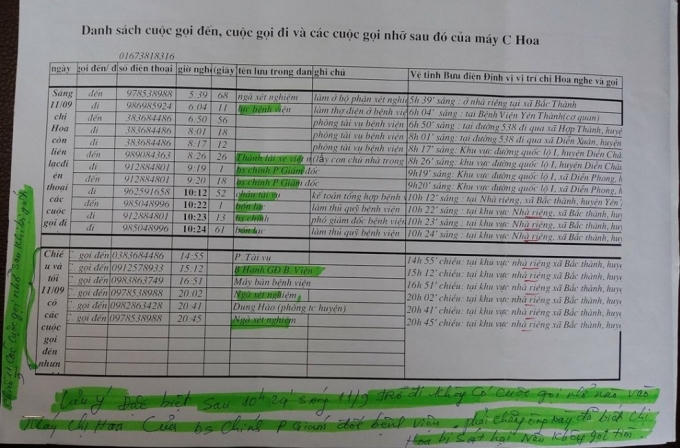 Danh sách cuộc gọi đến, cuộc gọi đi và các cuộc gọi nhỡ sau đó của máy C Hoa
01673818316
ngày gọi đến/ đ số điện thoai giờ nghe (giây tên lưu trong dan ghi chú Vệ tinh Bưu điện Định vị vị trí chị Hoa nghe và gọi
Sáng 11/09 chị Hoa còn liên lạcđi ến thoại các cuộc gọi đi
đến 978538988 5:39 68 ngà xét nghiệm làm ở bộ phận xét nghi 5h 39' sáng : ở nhà riêng tại xã Bắc Thành
đi 986985924 6:04 11 lực bệnh viện làm thợ điện ở bệnh viện 6h 04' sáng : tại Bệnh Viện Yên Thành(cơ quan)
đến 383684486 6:50 56 phòng tài vụ bệnh viện 6h 50' sáng : tại đường 538 đi qua xã Hợp Thành, huyệ
đi 383684486 8:01 18 phòng tài vụ bệnh viện 8h 01' sáng : tại đường 538 đi qua xã Diễn Xuân, huyện
đi 383684486 8:17 12 phòng tài vụ bệnh viện 8h 17' sáng: Khu vực đường quốc lộ I, huyện Diễn Châ
đến 989084363 8:26 26 Thành tài xe viện (lấy con chú nhà trong 8h 26' sáng: Khu vực đường quốc lộ I, huyện Diễn Châ
đi 912884801 9:19 1 bs chính P Giám đốc 9h19' sáng: Khu vực đường quốc lộ I, xã Diễn Phong, h
đến 912884801 9:20 18 bs chính P Giám đốc 9h20' sáng: Khu vực đường quốc lộ I, xã Diễn Phong, h
đi 962591658 10:12 52 châu tài vụ kế toán tổng hợp bệnh v 10h 12' sáng : tại Nhà riêng, xã Bắc thành, huyện Yên T
đến 985048996 10:22 1 bốn tài làm thủ quỹ bệnh viện 10h 22' sáng : tại khu vực Nhà riêng, xã Bắc thành, huyệ
đi 912884801 10:23 13 bs chính phó giám đốc bệnh viện 10h 23' sáng : tại khu vực Nhà riêng, xã Bắc thành, huyệ
đi 985048996 10:24 61 bốn tài làm thủ quỹ bệnh viện 10h 24' sáng : tại khu vực Nhà riêng, xã Bắc thành, huyệ
Chiề u và tối 11/09 có các cuộc gọi đến nhưn
gọi đến 0383684486 14:55 P. Tài vụ 14h 55' chiều : tại khu vực nhà riêng xã Bắc thành, huyệ
gọi đến 0912578933 15:12 B Hạnh GĐ B. Viện 15h 12' chiều : tại khu vực nhà riêng xã Bắc thành, huyệ
gọi đến 0983863749 16:51 Máy bàn bệnh viện 16h 51' chiều : tại khu vực nhà riêng xã Bắc thành, huyệ
gọi đến 0978538988 20:02 Ngà xét nghiệm 20h 02' chiều : tại khu vực nhà riêng xã Bắc thành, huyệ
gọi đến 0982863428 20:41 Dung Hảo (phòng tc huyện) 20h 41' chiều : tại khu vực nhà riêng xã Bắc thành, huyệ
gọi đến 0978538988 20:45 Ngà xét nghiệm 20h 45' chiều : tại khu vực nhà riêng xã Bắc thành, huyệ
Lưu ý Đặc biệt sau 10h 24' sáng 11/9 trở đi không có cuộc gọi nhỡ nào vào
Máy chị Hoa Của bs Chính P Giám đốc bệnh viện, phải chăng ông này đã biết chị
Hoa bị sát hại nên không gọi